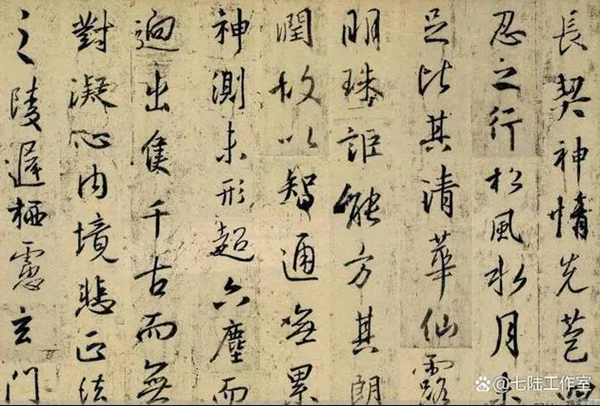 長契神情先苞四
忍之行松風水月未
足比其清華仙露
明珠詎能方其朗
潤故以智通無累
神測未形超六塵而
迥出隻千古而無
對凝心內境悲正法
之陵遲栖慮玄門
七陆工作室